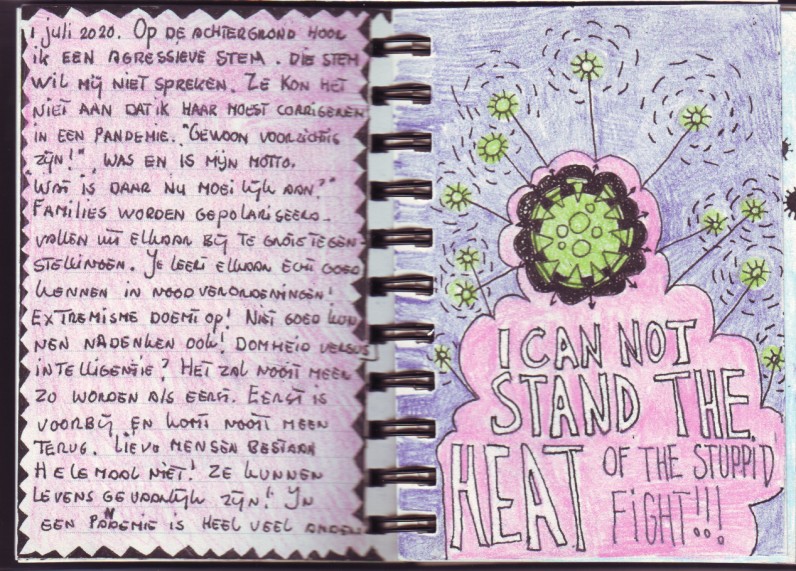 1 juli 2020. Op de achtergrond hoor
ik een agressieve stem. Die stem
wil mij niet spreken. Ze kon het
niet aan dat ik haar moest corrigeren
in een pandemie. "Gewoon voorzichtig
zijn!" was en is mijn motto.
"Wat is daar nu moeilijk aan?"
Families worden gepolariseerd
vallen uit elkaar bij te grote tegen-
stellingen. Je leert elkaar echt goed
kennen in noodverordeningen!
Extremisme doemt op! Niet goed kun
nen nadenken ook! Domheid versus
intelligentie? Het zal nooit meer
zo worden als eerst. Eerst is
voorbij en komt nooit meer
terug. Lieve mensen bestaan
helemaal niet! Ze kunnen
levensgevaarlijk zijn! In
een pandemie is heel veel anders
I CAN NOT
STAND THE
HEAT OF THE STUPPID
FIGHT!!!